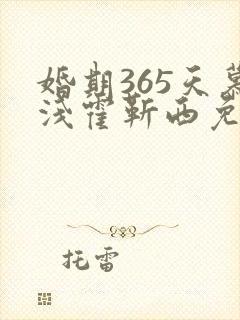 婚期365天慕
浅霍靳西免
托雷